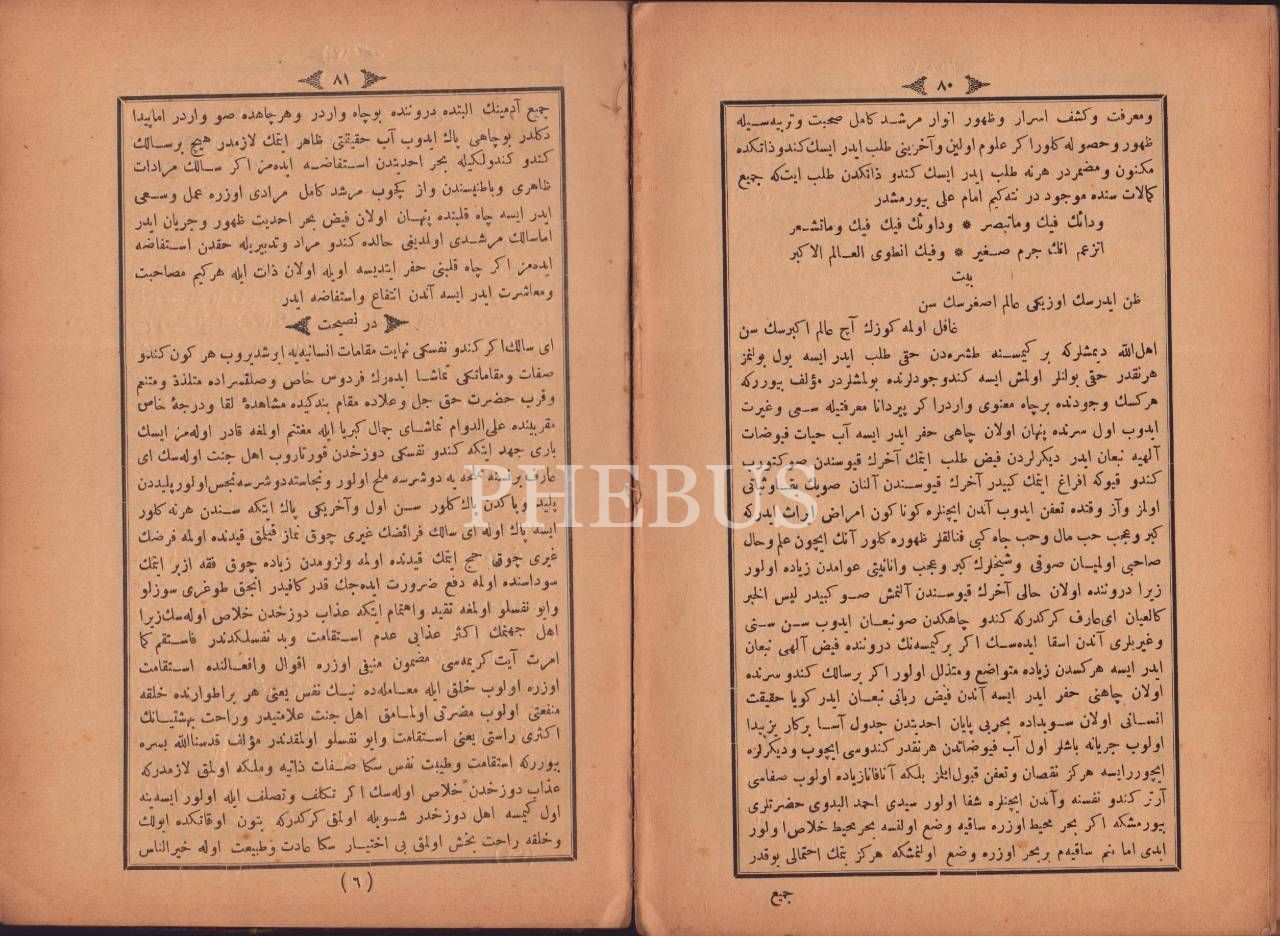 ٨٠
ومعرفت وكشف اسرار وظهور انوار مرشد كامل صحبت وتربيه سيله
ظهور وحصوله كلور اكر علوم اولين وآخرينى طلب ايدر ايسك كندو ذاتكده
مكنون ومضمردر هرنه طلب ايدر ايسك كندو ذاتكدن طلب ايت كه جميع
كمالات سنده موجود در نته كيم امام على بيورمشدر
ودائك فيك وماتبصر * وداونك فيك فيك وماتشعر
اتزعم انك جرم صغير * وفيك انطوى العالم الاكبر
بيت
ظن ايدرسك اوزيكى عالم اصغرسك سن
غافل اولمه كوزك آچ عالم اكبرسك سن
اهل الله ديمشلركه بر كيمسنه طشره دن حقى طلب ايدر ايسه يول بولنمز
هرنقدر حقى بولنلر اولمش ايسه كندو وجودلرنده بولمشلردر مؤلف بيوررکه
هركسك وجودنده برچاه معنوى واردر اكر پيردانا معرفتيله سعى وغيرت
ايدوب اول سرنده پنهان اولان چاهى حفر ايدر ايسه آب حيات فيوضات
آلهيه نبعان ايدر ديكرلردن فيض طلب ايتمك آخرك قيوسندن صو كتوروب
كندو قيوكه افراغ ايتمك كبيدر آخرك قيوسندن آلنان صويك بقا وثباتى
اولمز وآز وقتده تعفن ايدوب آندن ايچنلره كوناكون امراض ايراث ايدركه
كبر وعجب حب مال وحب جاه كبى فنالقلر ظهوره كلور آنك ايچون علم وحال
صاحبى اولميان صوفى وشيخلرك كبر وعجب وانانيتى عوامدن زياده اولور
زيرا درونده اولان حالى آخرك قيوسندن آلنمش صو كبيدر ليس الخبر
كالعيان اى عارف كركدركه كندو چاهكدن صو نبعان ايدوب سن سنى
وغيريلرى آندن اسقا ايده سك اكر بر كيمسه نك دروننده فيض آلهى نبعان
ايدر ايسه هركسدن زياده متواضع ومتذلل اولور اكر برسالك كندو سرنده
اولان چاهنى حفر ايدر ايسه آندن فيض ربانى نبعان ايدر كويا حقيقت
انسانى اولان سويداده بحر بى پايان احديتدن جدول آسا بركاريز پيدا
اولوب جريانه باشلر اول آب فيوضاتدن هرنقدر كندوسى ايچوب وديكرلره
ايچورر ايسه هركز نقصان وتعفن قبول ايتمز بلكه آنافانا زياده اولوب صفاسى
آرتر كندو نفسنه وآندن ايچنلره شفا اولور سيدى احمد البدوى حضرتلرى
بيورمشكه اكر بحر محيط اوزره ساقيه وضع اولنسه بحر محيط خلاص اولور
ايدى اما بنم ساقيه م بر بحر اوزره وضع اولنمشكه هركز بتمك احتمالى يوقدر
جميع
٨١
جميع آدمينك البته دروننده بو چاه واردر وهر چاهده صو واردر اما پيدا
دكلدر بو چاهى پاك ايدوب آب حقيقتى ظاهر ايتمك لازمدر هيچ برسالك
كندو كندولكيله بحر احديتدن استفاضه ايده مز اكر سالك مرادات
ظاهرى وباطنيسندن واز كچوب مرشد كامل مرادى اوزره عمل وسعى
ايدر ايسه چاه قلبنده پنهان اولان فيض بحر احديت ظهور وجريان ايدر
اما سالك مرشدى اولمديغى حالده كندو مراد وتدبيريله حقدن استفاضه
ايده مز اكر چاه قلبنى حفر ايتديسه اويله اولان ذات ايله هركيم مصاحبت
ومعاشرت ايدر ايسه آندن انتفاع واستفاضه ايدر
در نصيحت
اى سالك اكر كندو نفسكى نهايت مقامات انسانيه يه ايرشديروب هر كون كندو
صفات ومقاماتكى تماشا ايده رك فردوس خاص وصلتسراده متلذذ ومتنعم
وقرب حضرت حق جل وعلاده مقام بندكيده مشاهدۀ لقا ودرجۀ خاص
مقربينده على الدوام تماشاى جمال كبريا ايله مغتنم اولمغه قادر اوله مز ايسك
بارى جهد ايتكه كندو نفسكى دوزخدن قورتاروب اهل جنت اوله سك اى
عارف برنسنه ملحه يه دوشرسه ملح اولور ونجاسته دوشرسه نجس اولور پليددن
پليد وپاكدن پاك كلور سن اول وآخريكى پاك ايتكه سندن هرنه كلور
ايسه پاك اوله اى سالك فرائضك غيرى چوق نماز قيلمق قيدنده اولمه فرضك
غيرى چوق حج ايتمك قيدنده اولمه ولزومدن زياده چوق فقه ازبر ايتمك
سوداسنده اولمه دفع ضرورت ايده جك قدر كافيدر انجق طوغرى سوزلو
وايو نفسلو اولمغه تقيد واهتمام ايتكه عذاب دوزخدن خلاص اوله سك زيرا
اهل جهنمك اكثر عذابى عدم استقامت وبد نفسلكدندر فاستقم كما
امرت آيت كريمه سى مضمون منيفى اوزره اقوال وافعالنده استقامت
اوزره اولوب خلقى ايله معامله ده نيك نفس يعنى هر براطوارنده خلقه
منفعتى اولوب مضرتى اولمامق اهل جنت علامتيدر وراحت بهشتيانك
اكثرى راستى يعنى استقامت وايو نفسلو اولمقدندر مؤلف قدسنا الله بسره
بيوررکه استقامت وطيبت نفس سكا صفات ذاتيه وملكه اولمق لازمدركه
عذاب دوزخدن خلاص اوله سك اكر تكلف وتصلف ايله اولور ايسه ينه
اول كيمسه اهل دوزخدر شويله اولمق كركدركه بتون اوقاتكده ايولك
وخلقه راحت بخش اولمق بى اختيار سكا عادت وطبيعت اوله خير الناس
(٦)
PHEBUS